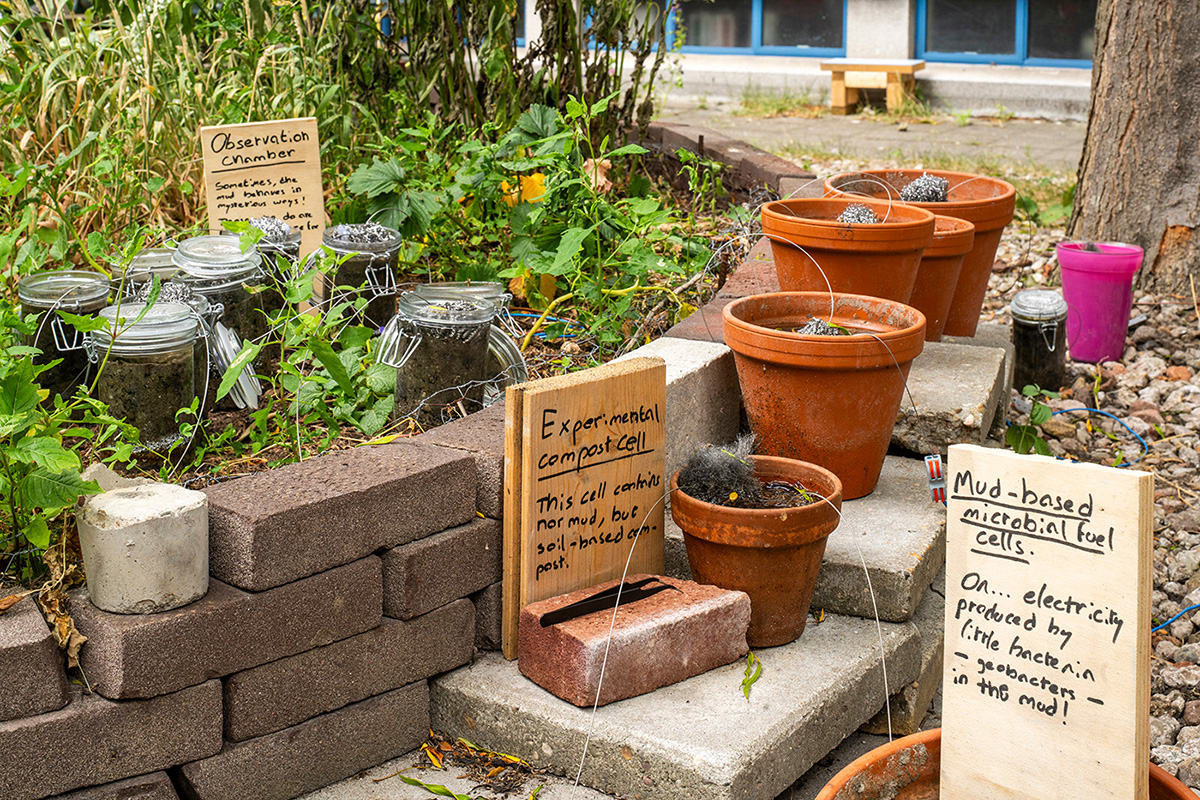 Observation
chamber
Sometimes, the
mud behaves in
mysterious ways!
do are
for
Experimental
compost cell
This cell contains
nor mud, but
soil-based com-
post.
Mud-based
microbial fuel
cells.
On... electricity
produced by
little bacteria
- geobacters -
in the mud!